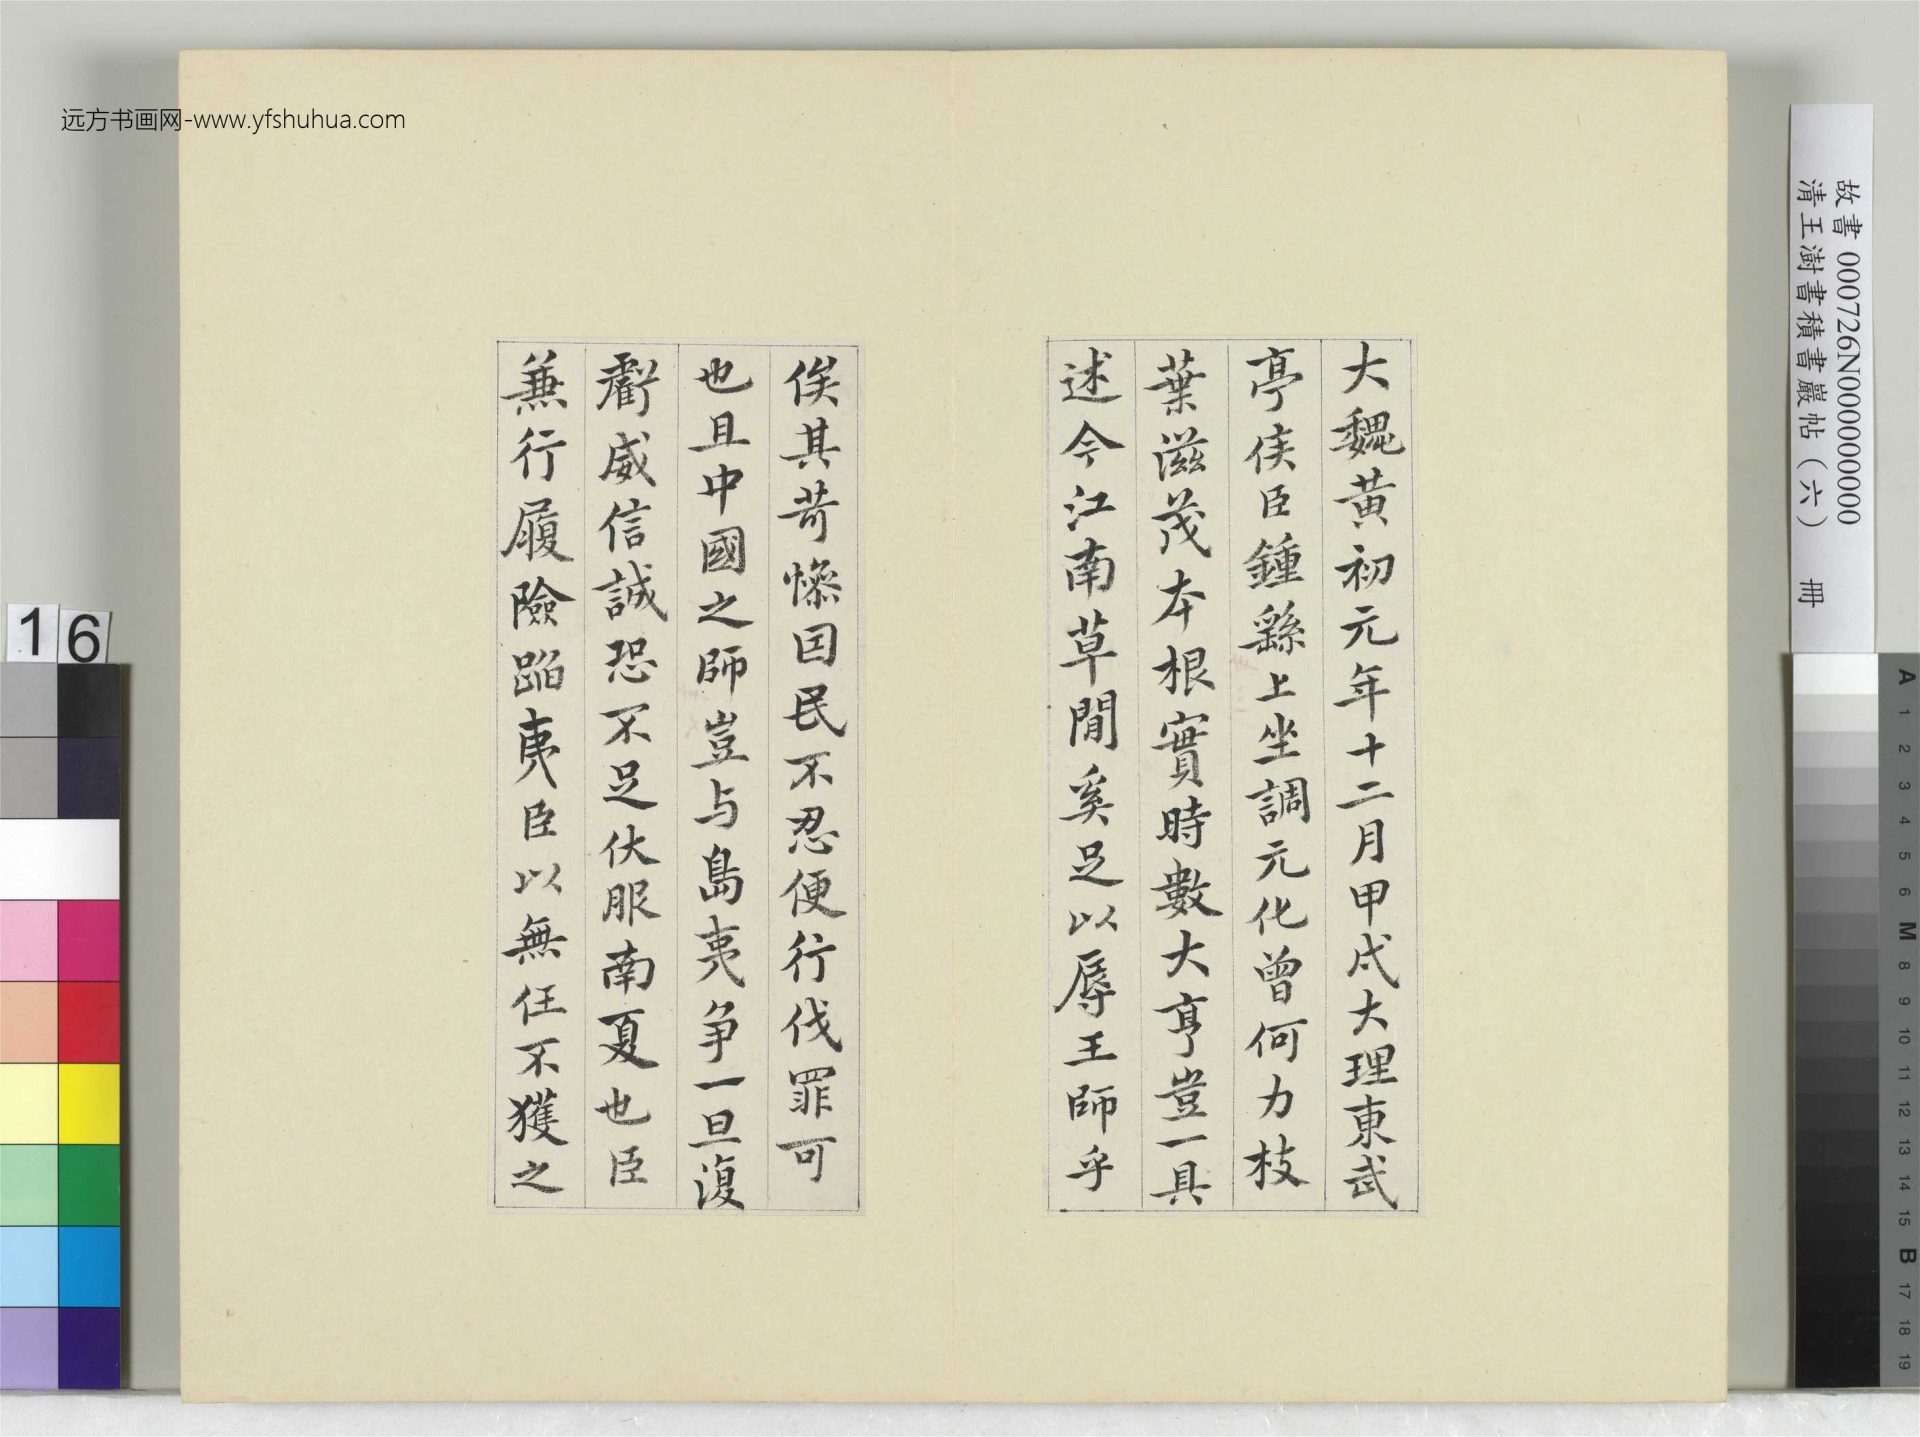 大魏黄初元年十二月甲戌大理東武
亭侯臣鍾繇上坐調元化曾何力枝
葉滋茂本根實時數大亨豈一具
述今江南草閒奚足以辱王師乎
俟其苛慘因民不忍便行伐罪可
也且中國之師豈与島夷争一旦復
虧威信誠恐不足伏服南夏也臣
兼行履險蹈夷臣以無任不獲之
远方书画网-www.yfshuhua.com
故書 000726N000000000
清王澍書積書巖帖(六) 冊
16
A 1 2 3 4 5 6 M 8 9 10 11 12 13 14 15 B 17 18 19